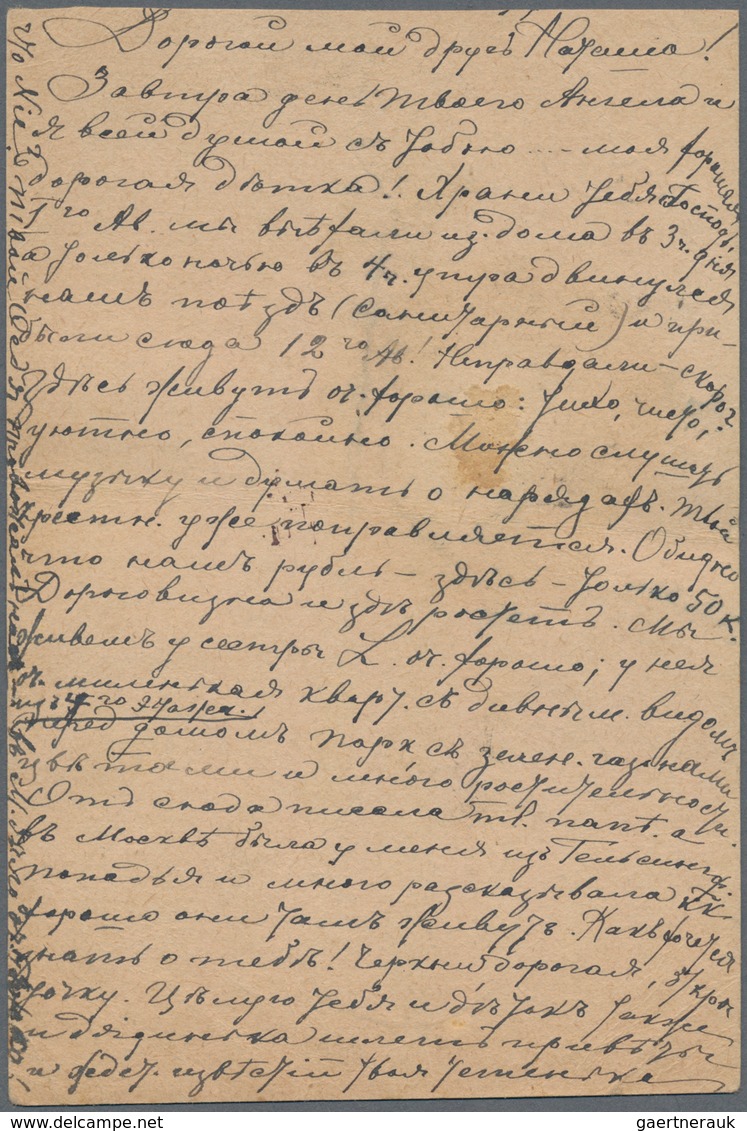 Дорогой мой другъ Наташа!
Завтра день твоего Ангела и
я всей душой съ тобою ... моя хорошая,
дорогая дѣтка! Храни тебя Господь.
1го Ав. мы выѣхали из дома въ 3 ч. дня
а только ночью въ 4 ч. утра двинулся
нашъ поѣздъ (санитарный) и при-
были сюда 12го Ав! Неправдали - скоро?
Здѣсь живутъ оч. хорошо: тихо, чисто,
уютно, спокойно. Можно слушать
музыку и думать о нарядахъ. Твой
крестн. уже поправляется. Обидно
что нашъ рубль - здѣсь - только 50 к.
Дороговизна и здѣ ростетъ. Мы
живемъ у сестры L. оч. хорошо; у нея
оч. миленькая кварт. съ дивным. видомъ
передъ домомъ паркъ съ зелен. газонами
цвѣтами и много растительности.
Отсюда писала тв. папѣ. а
въ Москвѣ была у меня изъ Гельсингф.
попадья и много разсказывала кк
хорошо они тамъ живутъ. Какъ хочется
знать о тебѣ! Черкни дорогая,
точку. Цѣлую тебя и дѣтокъ также
и дядинька шлетъ привѣты
и ждет. извѣстій твоя тетенька